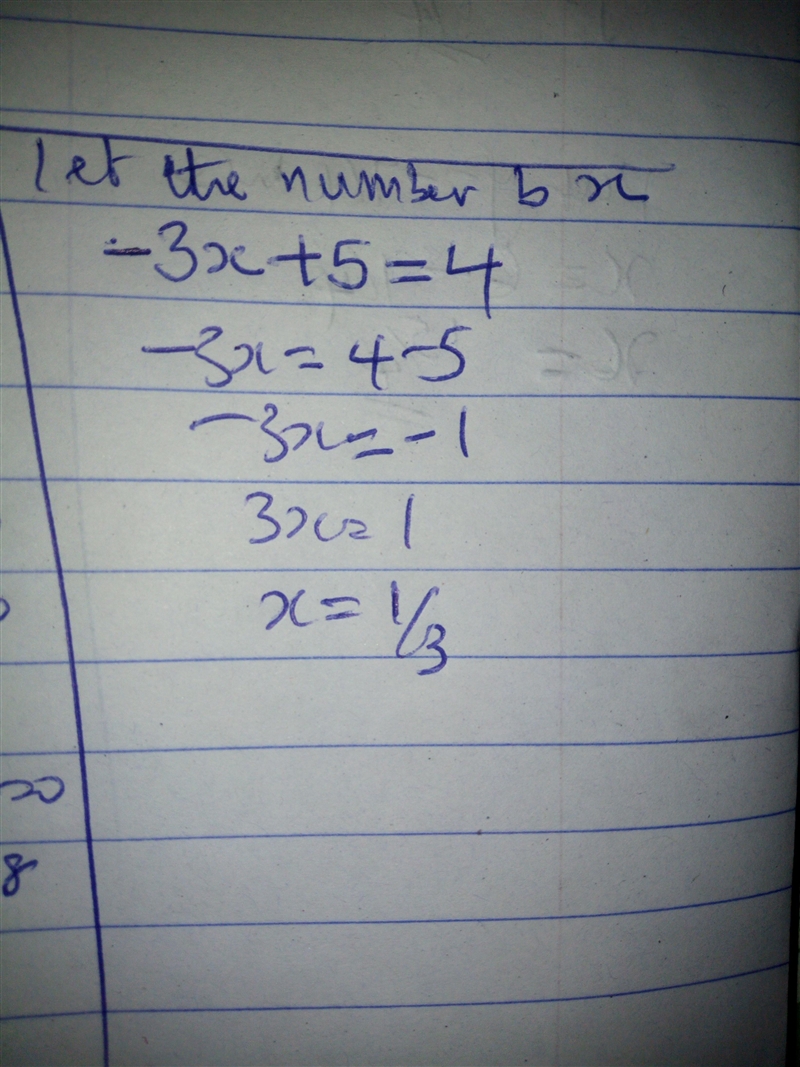 let the number b x
-3x+5=4
-3x=4-5
-3x=-1
3x=1
x=1/3
20
8